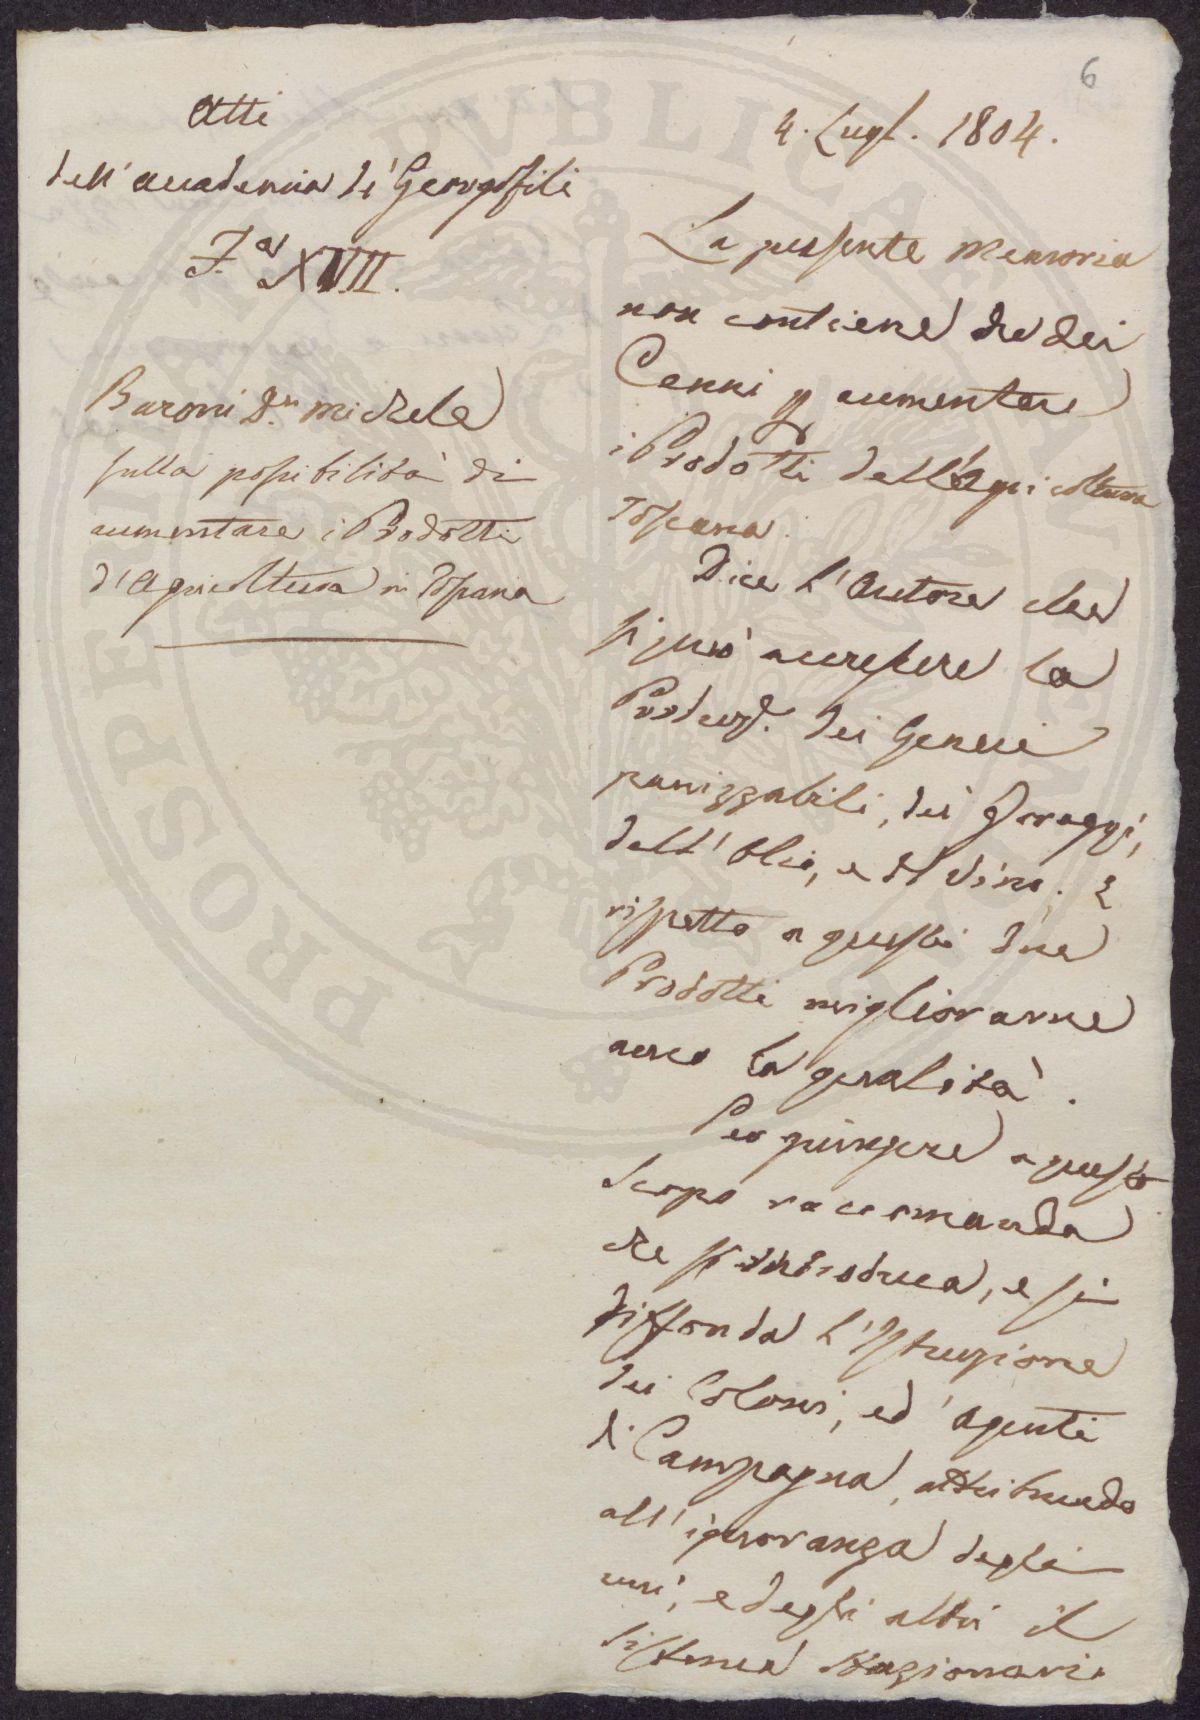 6
Atti
dell'accademia de' Georgofili
F.a XVII.
Baroni D.n Michele
sulla possibilità di
aumentare i Prodotti
d'Agricoltura in Toscana
4. Lugl. 1804.
La presente Memoria
non contiene che dei
Cenni p aumentare
i Prodotti dell'Agricoltura
Toscana.
Dice l'Autore che
si può accrescere la
Produz. dei Generi
panizzabili, dei Foraggi,
dell'Olio, e del Vino. E
rispetto a questi due
Prodotti migliorarne
anco la qualità.
Per giungere a questo
scopo raccomanda
che s'introduca, e si
diffonda l'Istruzione
dei Coloni, ed Agenti
di Campagna, attribuendo
all'ignoranza degli
uni, e degli altri il
sistema stazionario
PVBLICAE
PROSPERITATI